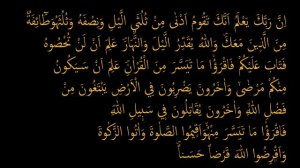 إِنَّ رَبَّكَ يَعْلَمُ أَنَّكَ تَقُومُ أَدْنَىٰ مِنْ ثُلُثَيِ الَّيْلِ وَنِصْفَهُ وَثُلُثَهُ وَطَائِفَةٌ
مِنَ الَّذِينَ مَعَكَ وَاللهُ يُقَدِّرُ الَّيْلَ وَالنَّهَارَ عَلِمَ أَنْ لَنْ تُحْصُوهُ
فَتَابَ عَلَيْكُمْ فَاقْرَؤُا مَا تَيَسَّرَ مِنَ الْقُرْآنِ عَلِمَ أَنْ سَيَكُونُ
مِنْكُمْ مَرْضَىٰ وَآخَرُونَ يَضْرِبُونَ فِي الْأَرْضِ يَبْتَغُونَ مِنْ
فَضْلِ اللهِ وَآخَرُونَ يُقَاتِلُونَ فِي سَبِيلِ اللهِ
فَاقْرَؤُا مَا تَيَسَّرَ مِنْهُ وَأَقِيمُوا الصَّلَوةَ وَآتُوا الزَّكَوةَ
وَأَقْرِضُوا اللهَ قَرْضًا حَسَنًا